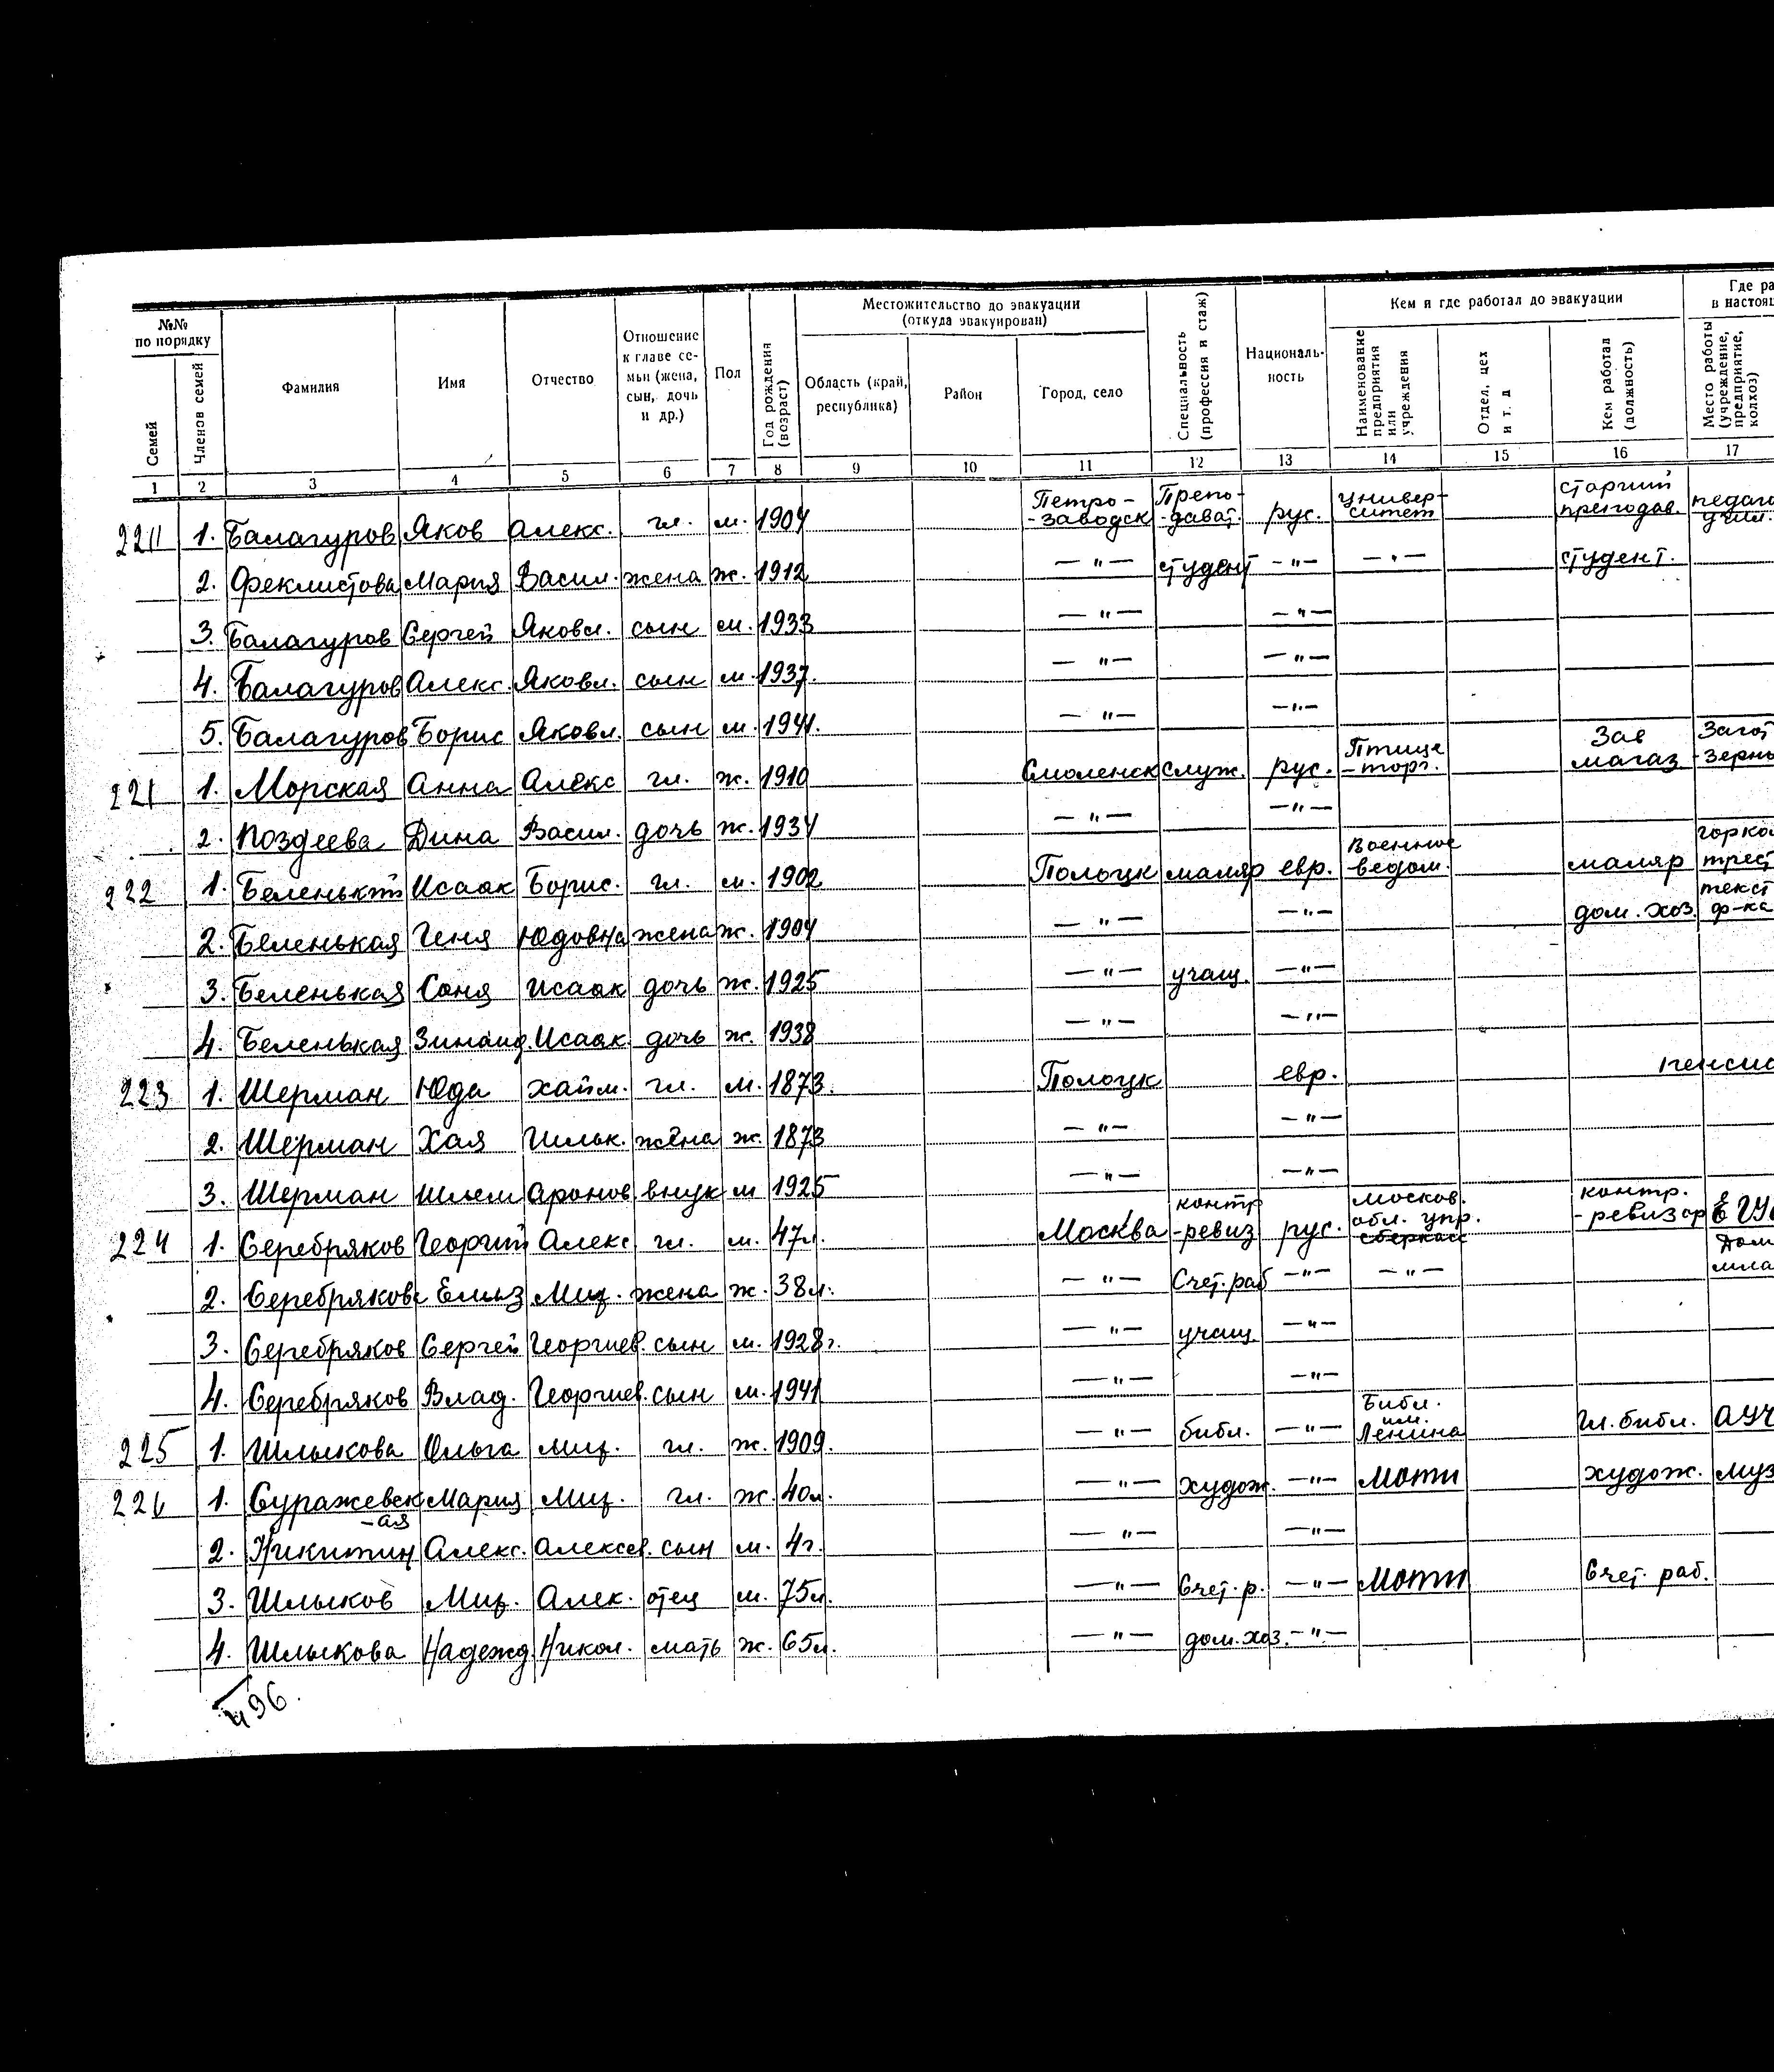 №№ по порядку | Фамилия | Имя | Отчество | Отношение к главе семьи (жена, сын, дочь и др.) | Пол | Год рождения (возраст) | Местожительство до эвакуации (откуда эвакуирован) | Специальность (профессия и стаж) | Националь-ность | Кем и где работал до эвакуации | Где ра в настоящ
Семей | Членов семей | Область (край, республика) | Район | Город, село | Наименование предприятия или учреждения | Отдел, цех и т. д | Кем работал (должность) | Место работы (учреждение, предприятие, колхоз)
1 2 3 4 5 6 7 8 9 10 11 12 13 14 15 16 17
1. Балагуров Яков Алекс. гл. м. 1904 Петро--заводск Препо--дават. рус. Универ-ситет старший преподав. педаго учил.
2. Феклистова Мария Васил. жена ж. 1912 —"— студент —"— —"— студент.
3. Балагуров Сергей Яковл. сын м. 1933 —"— —"—
4. Балагуров Алекс. Яковл. сын м. 1937. —"— —"—
5. Балагуров Борис Яковл. сын м. 1941. —"— —"—
221 1. Морская Анна Алекс гл. ж. 1910 Смоленск служ. рус. Птице-торг. Зав магаз Загот зерно
2. Поздеева Дина Васил. дочь ж. 1934 —"— —"—
222 1. Беленький Исаак Борис. гл. м. 1902 Полоцк маляр евр. Военное ведом. маляр горко трест
2. Беленькая Геня Юдовна жена ж. 1904 —"— —"— дом. хоз. текст ф-ка
3. Беленькая Соня Исаак дочь ж. 1925 —"— учащ. —"—
4. Беленькая Зинаид. Исаак дочь ж. 1938 —"— —"—
223 1. Шерман Юда Хайм. гл. м. 1873. Полоцк евр. пенсио
2. Шерман Хая Гильк. жена ж. 1873 —"— —"—
3. Шерман Шлем Аронов внук м 1925 —"— —"—
224 1. Серебряков Георгий Алекс гл. м. 47л. Москва контр-ревиз рус. москов. обл. упр. сберкасс контр.-ревизор
2. Серебрякова Елиз Мих. жена ж. 38л. —"— Счет. раб —"— —"— Дом мла
3. Серебряков Сергей Георгиев. сын м. 1928г. —"— учащ. —"—
4. Серебряков Влад. Георгиев. сын м. 1941 —"— —"—
225 1. Шлыкова Ольга Мих. гл. ж. 1909. —"— библ. —"— Библ. им. Ленина гл. библ.
226 1. Суражевск-ая Мария Мих. гл. ж. 40л. —"— худож. —"— МОТИ худож. муз
2. Никитин Алекс. Алексев. сын м. 4г. —"— —"—
3. Шлыков Мих. Алек. отец м. 75л. —"— Счет. р. —"— МОТИ Счет. раб.
4. Шлыкова Надежд Никол. мать ж. 65л. —"— дом. хоз. —"—
96.